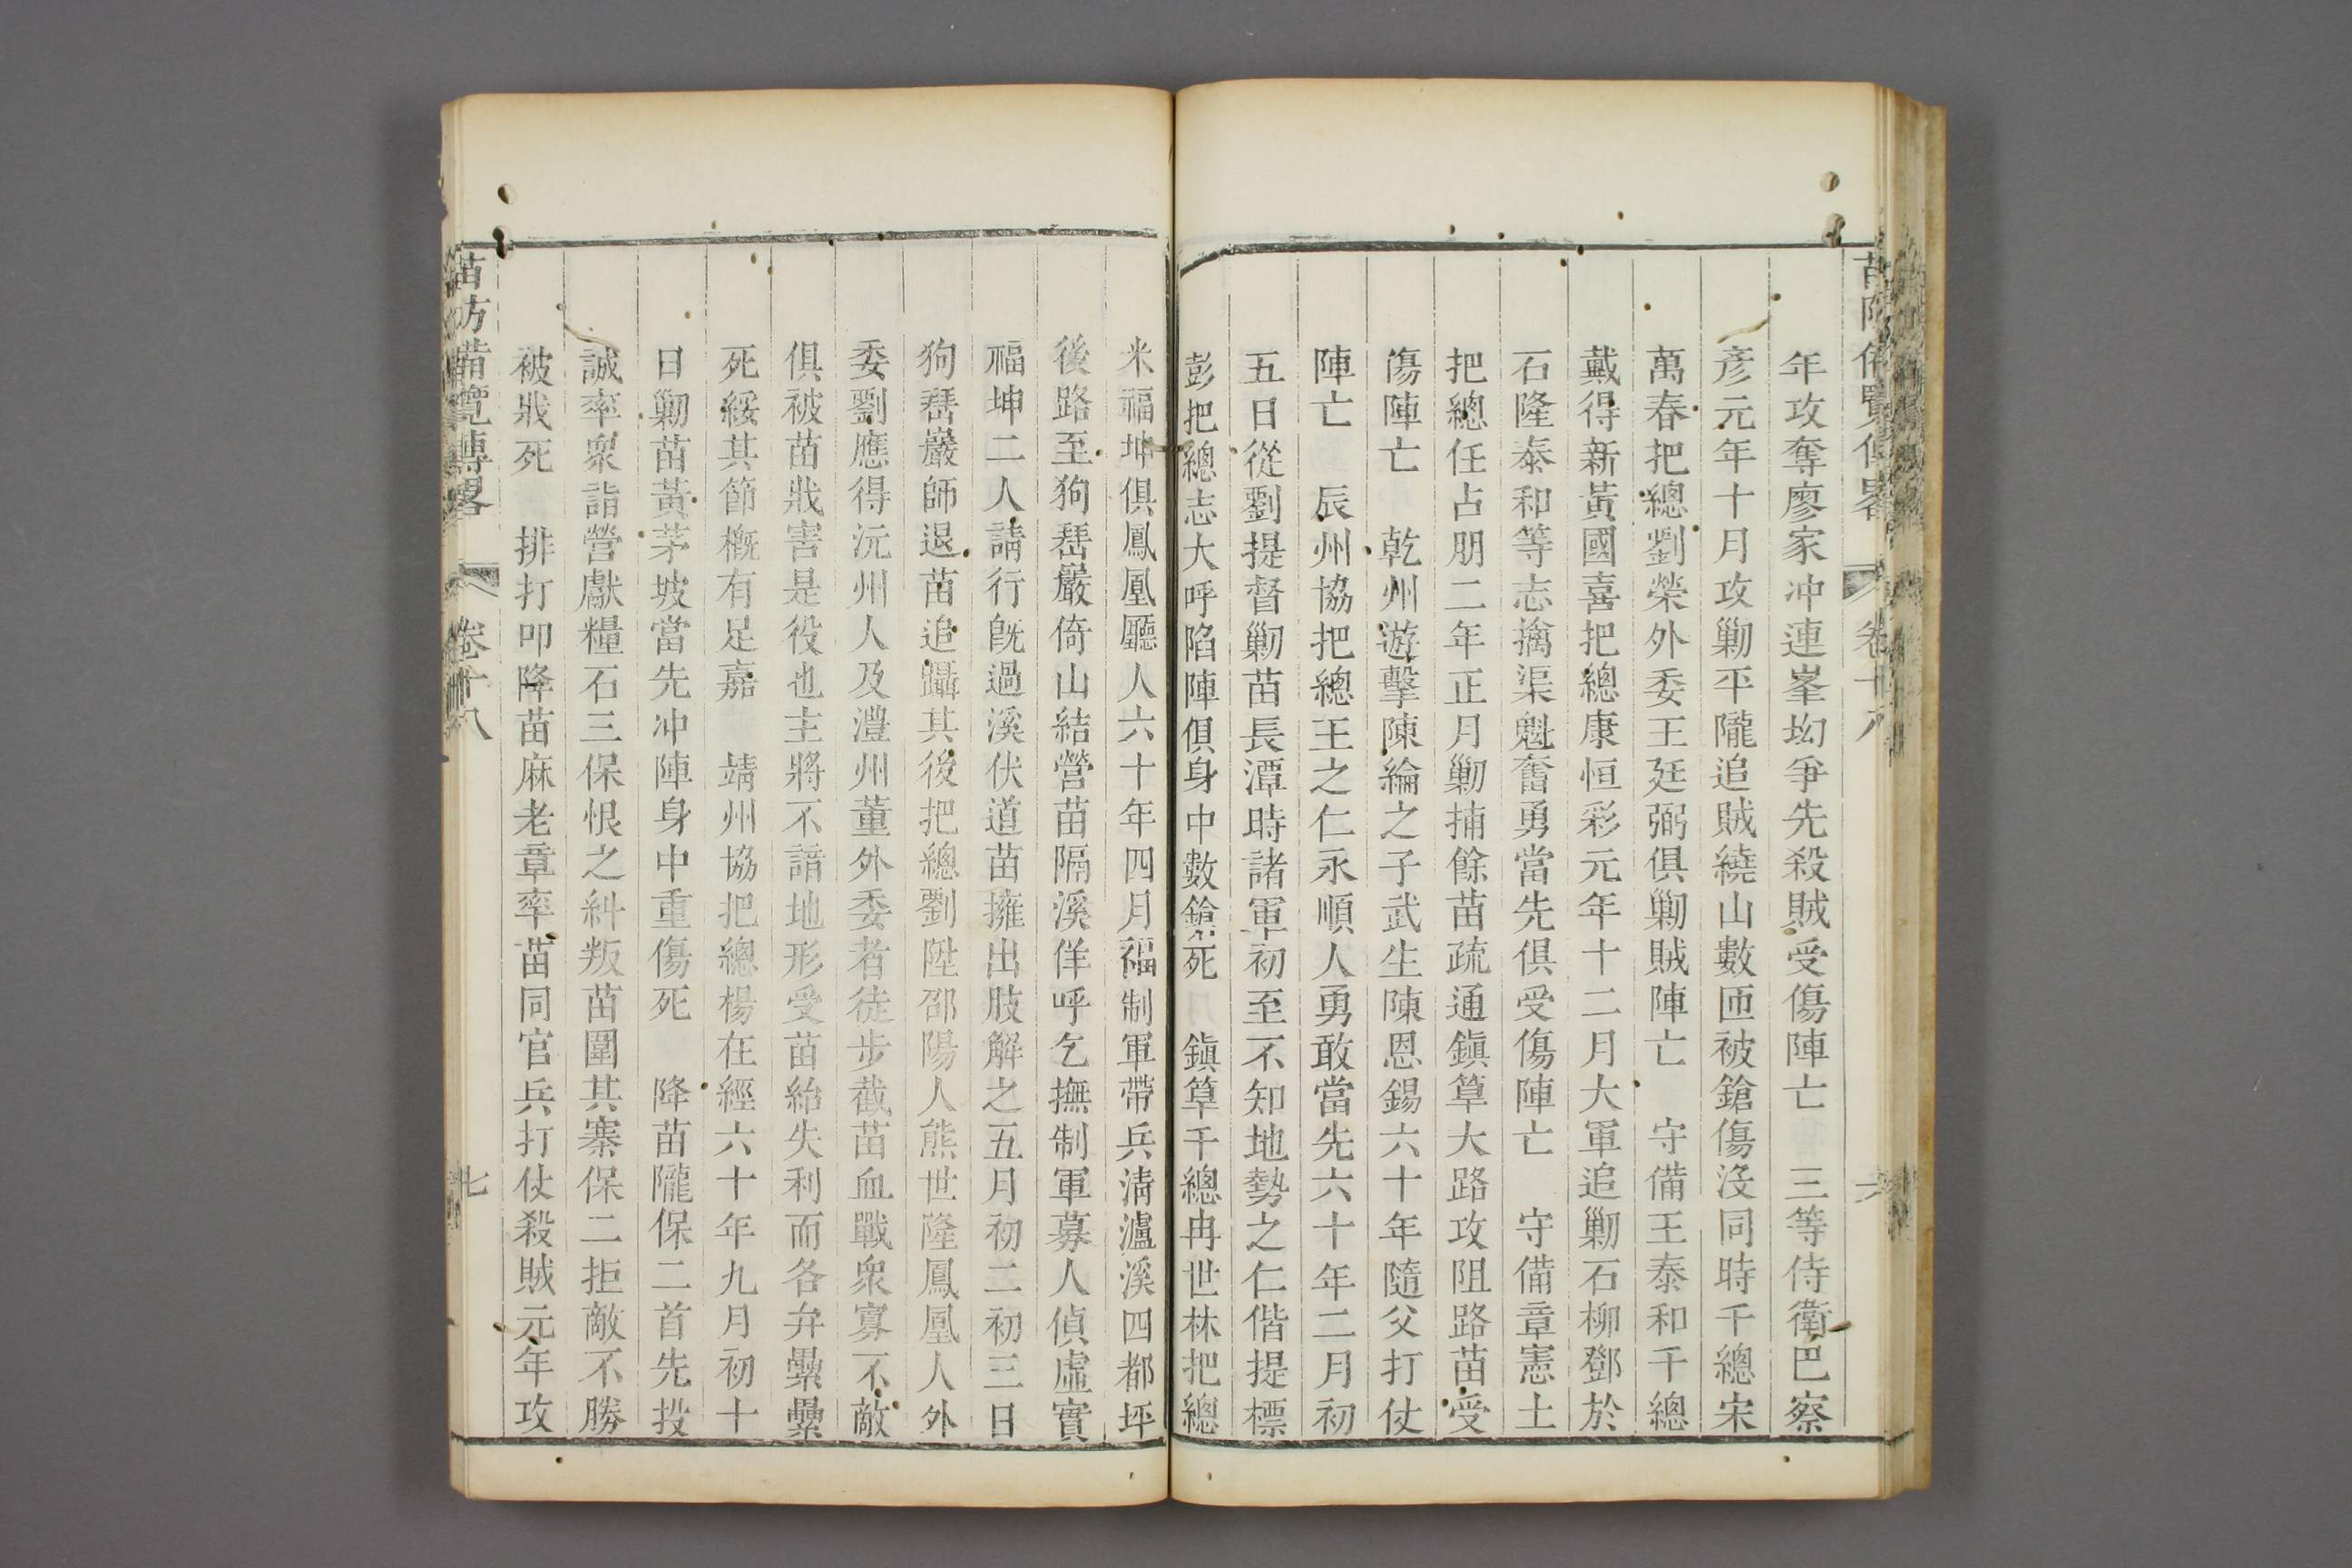 苗防備覽傳畧 卷十八 六
年攻奪廖家冲連峯㘭爭先殺賊受傷陣亡 三等侍衛巴察
彥元年十月攻勦平隴追賊繞山數匝被鎗傷沒同時千總宋
萬春把總劉榮外委王廷弼俱勦賊陣亡 守備王泰和千總
戴得新黃國喜把總康恒彩元年十二月大軍追勦石柳鄧於
石隆泰和等志擒渠魁奮勇當先俱受傷陣亡 守備章憲土
把總任占朋二年正月勦捕餘苗疏通鎭筸大路攻阻路苗受
傷陣亡 乾州遊擊陳綸之子武生陳恩錫六十年隨父打仗
陣亡 辰州協把總王之仁永順人勇敢當先六十年二月初
五日從劉提督勦苗長潭時諸軍初至不知地勢之仁偕提標
彭把總志大呼陷陣俱身中數鎗死 鎭筸千總冉世林把總
米福坤俱鳳凰廳人六十年四月福制軍帶兵淸瀘溪四都坪
後路至狗㟂巖倚山結營苗隔溪佯呼乞撫制軍募人偵虛實
福坤二人請行旣過溪伏道苗擁出肢解之五月初二初三日
狗㟂巖師退苗追躡其後把總劉陞邵陽人熊世隆鳳凰人外
委劉應得沅州人及澧州董外委者徒步截苗血戰衆寡不敵
俱被苗戕害是役也主將不諳地形受苗紿失利而各弁纍纍
死綏其節槪有足嘉 靖州協把總楊在經六十年九月初十
日勦苗黃茅坡當先冲陣身中重傷死 降苗隴保二首先投
誠率衆詣營獻糧石三保恨之糾叛苗圍其寨保二拒敵不勝
被戕死 排打叩降苗麻老章率苗同官兵打仗殺賊元年攻
苗防備覽傳畧 卷十八 七